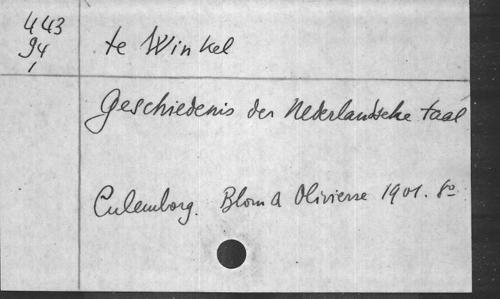 443
94
1
te Winkel
Geschiedenis der Nederlandsche taal
Culemborg. Blom a Olivierse 1901. 8o